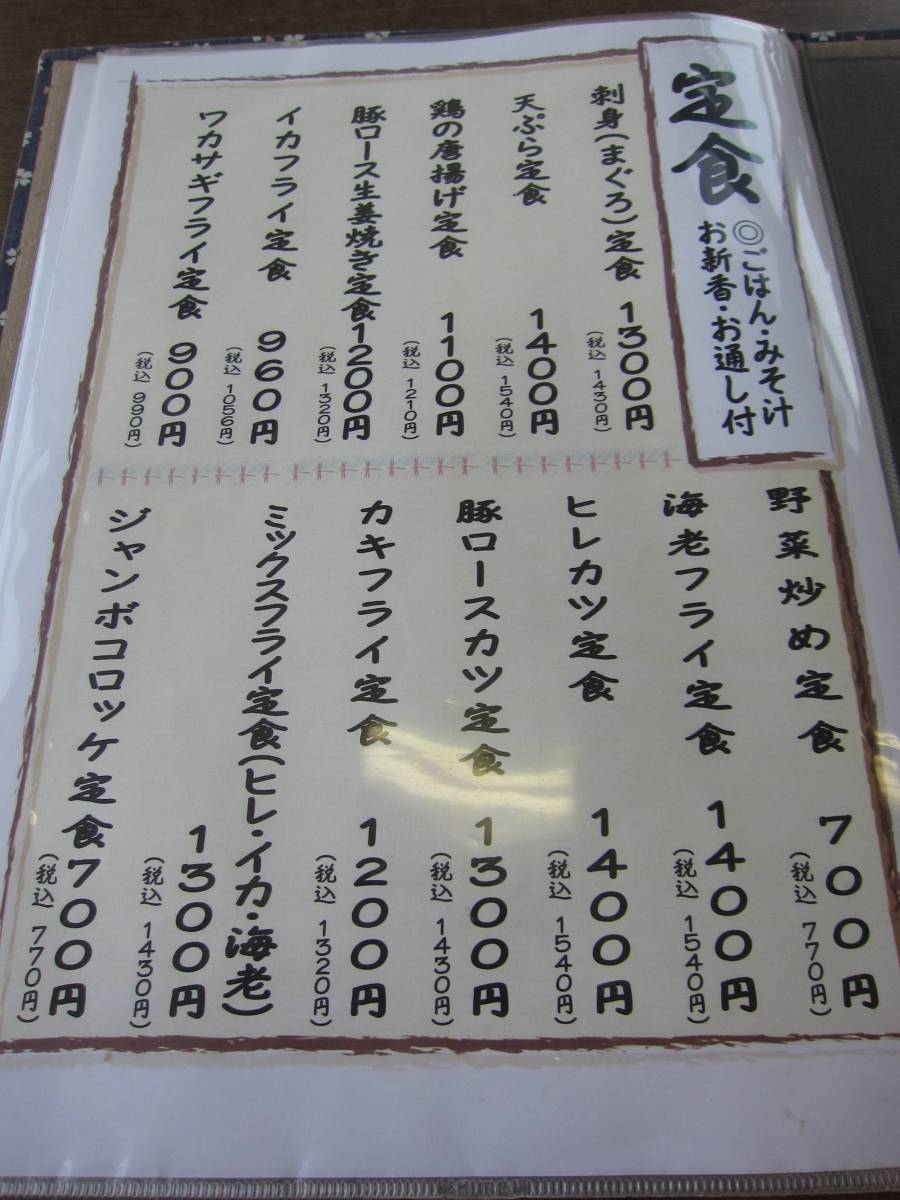 定食
◎ごはん・みそ汁
お新香・お通し付
刺身(まぐろ)定食
1300円
(税込 1430円)
天ぷら定食
1400円
(税込 1540円)
鶏の唐揚げ定食
1100円
(税込 1210円)
豚ロース生姜焼き定食
1200円
(税込 1320円)
イカフライ定食
960円
(税込 1056円)
ワカサギフライ定食
900円
(税込 990円)
野菜炒め定食
700円
(税込 770円)
海老フライ定食
1400円
(税込 1540円)
ヒレカツ定食
1400円
(税込 1540円)
豚ロースカツ定食
1300円
(税込 1430円)
カキフライ定食
1200円
(税込 1320円)
ミックスフライ定食(ヒレ・イカ・海老)
1300円
(税込 1430円)
ジャンボコロッケ定食
700円
(税込 770円)